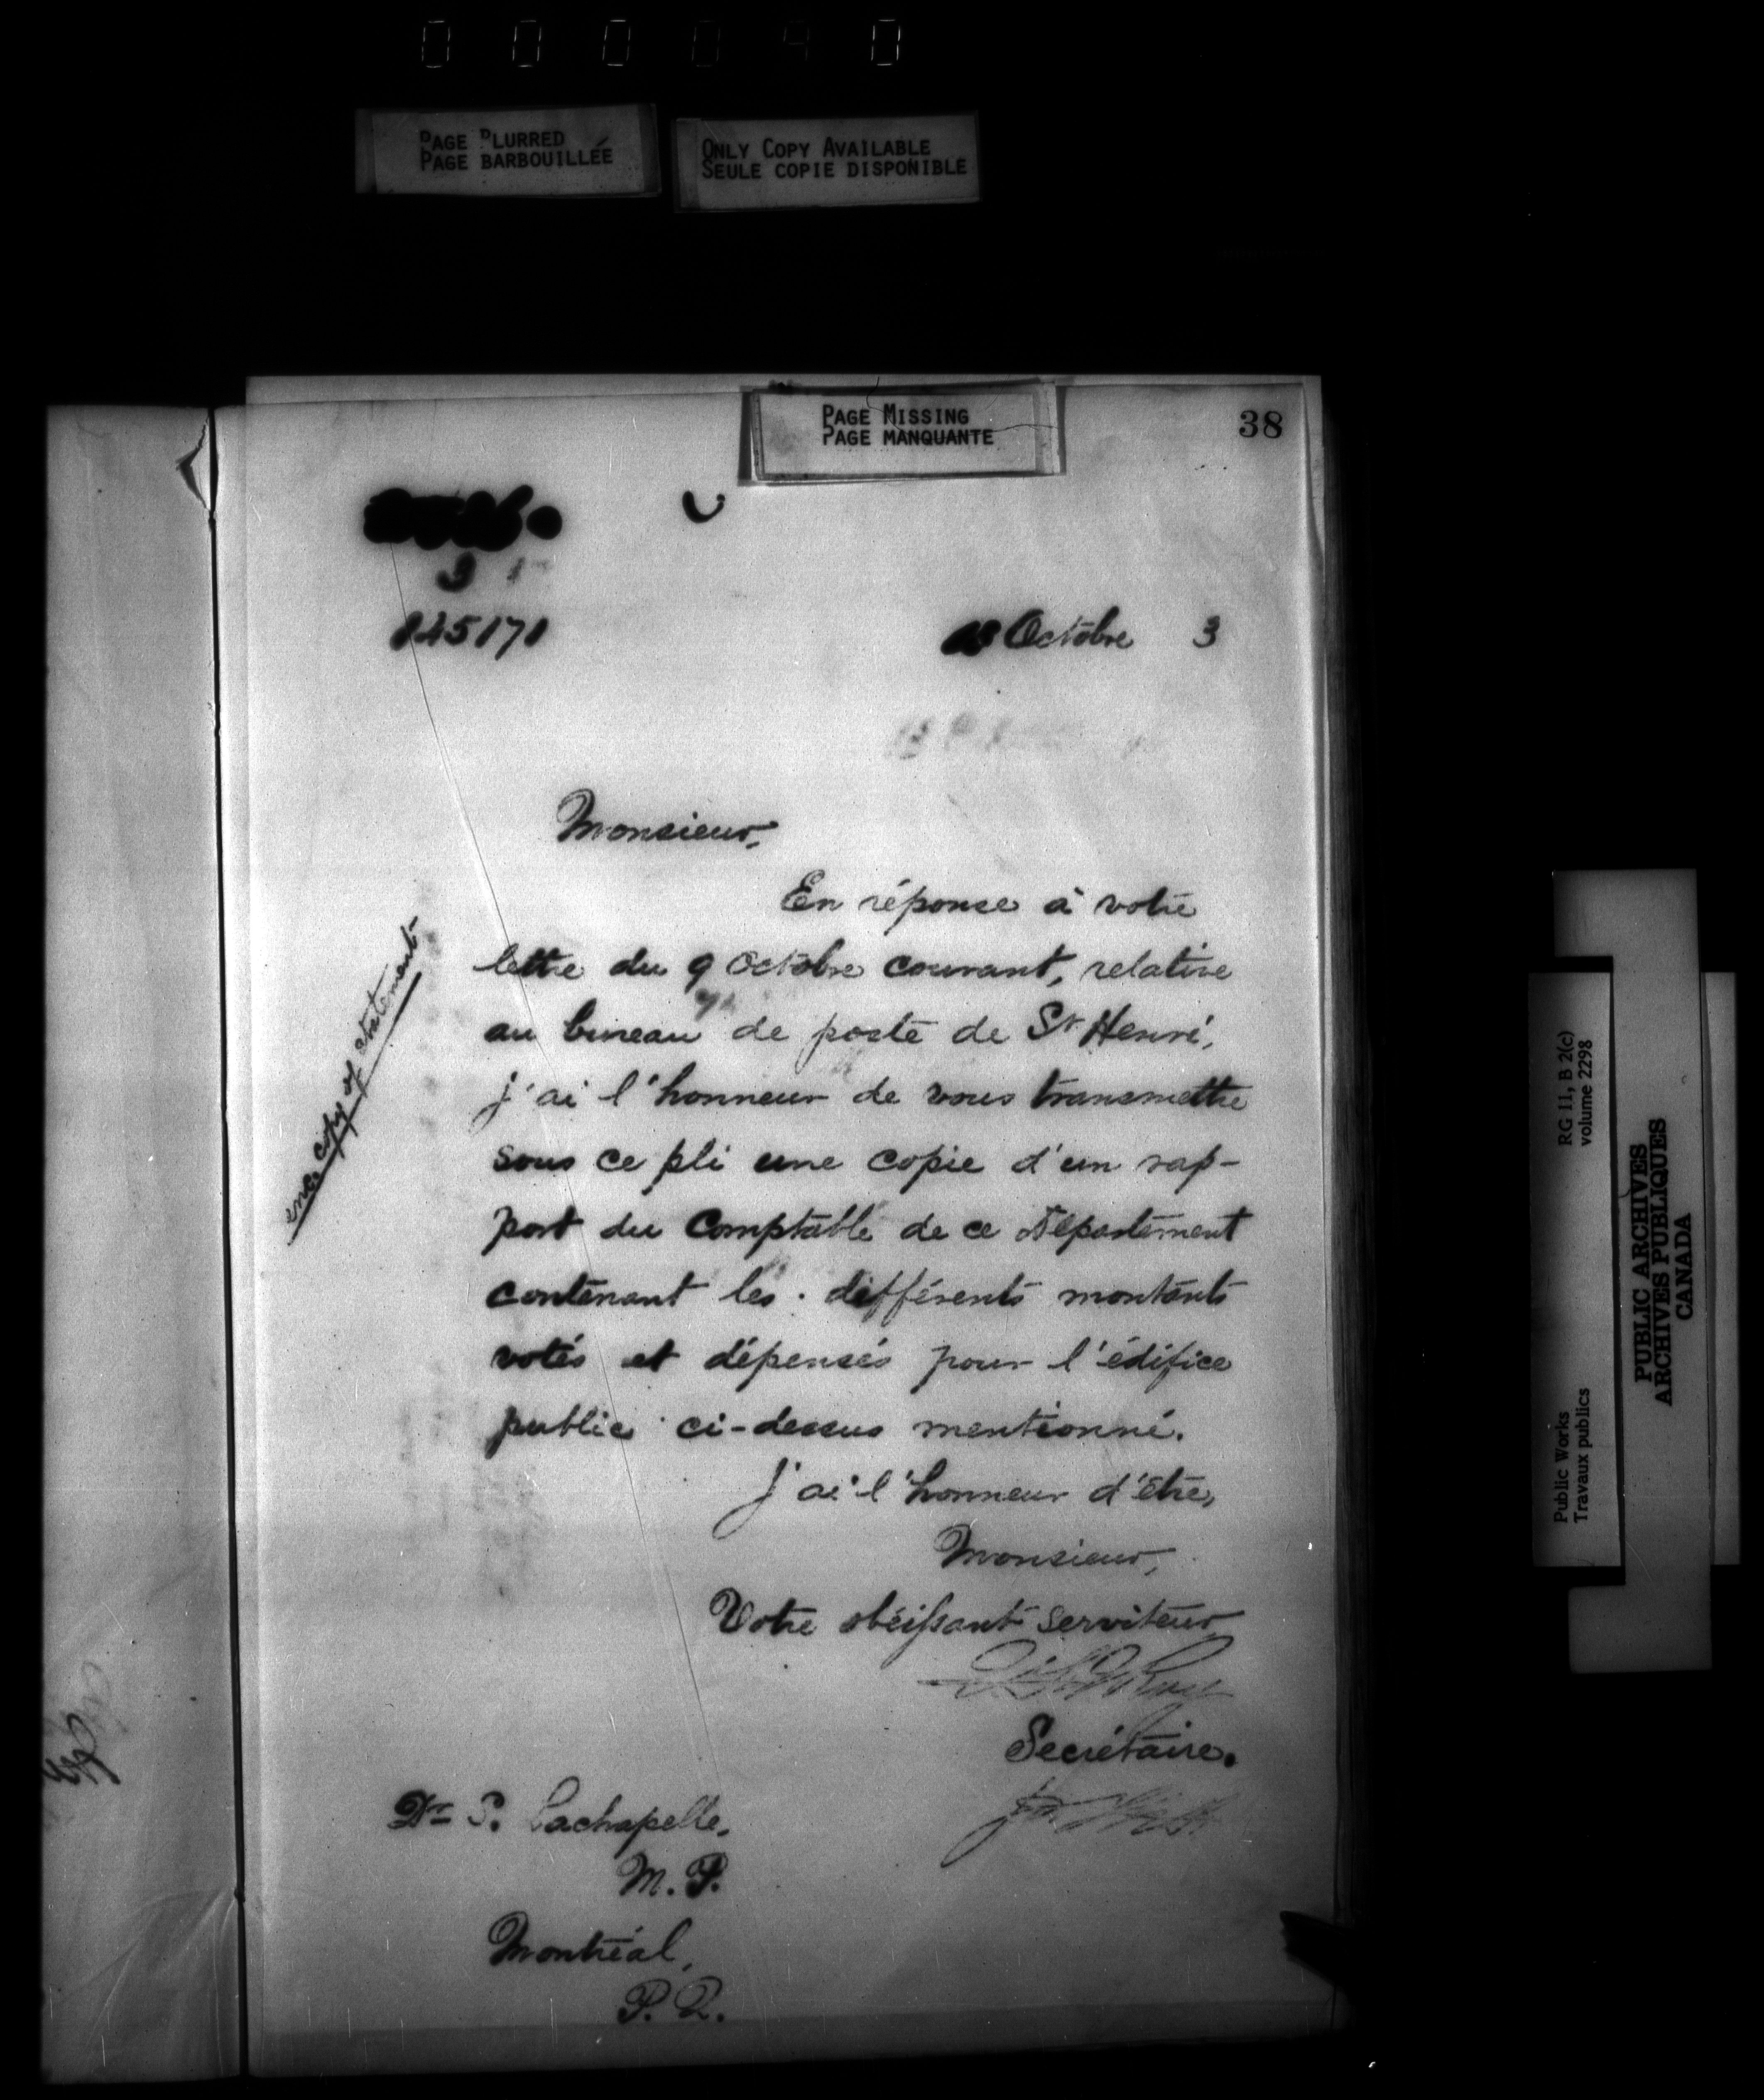 PAGE BLURRED
PAGE BARBOUILLÉE
ONLY COPY AVAILABLE
SEULE COPIE DISPONIBLE
PAGE MISSING
PAGE MANQUANTE
38
145171
Octobre 3
Monsieur,
En réponse à votre
lettre du 9 Octobre courant, relative
au bureau de poste de St Henri,
j'ai l'honneur de vous transmettre
sous ce pli une copie d'un rap-
port du Comptable de ce Département
contenant les différents montants
votés et dépensés pour l'édifice
public ci-dessus mentionné.
J'ai l'honneur d'être,
Monsieur,
Votre obéissant serviteur
Secrétaire.
Dr P. Lachapelle,
M. P.
Montréal,
P. Q.
enc. copy of statement
Public Works RG 11, B 2(c)
Travaux publics volume 2298
PUBLIC ARCHIVES
ARCHIVES PUBLIQUES
CANADA